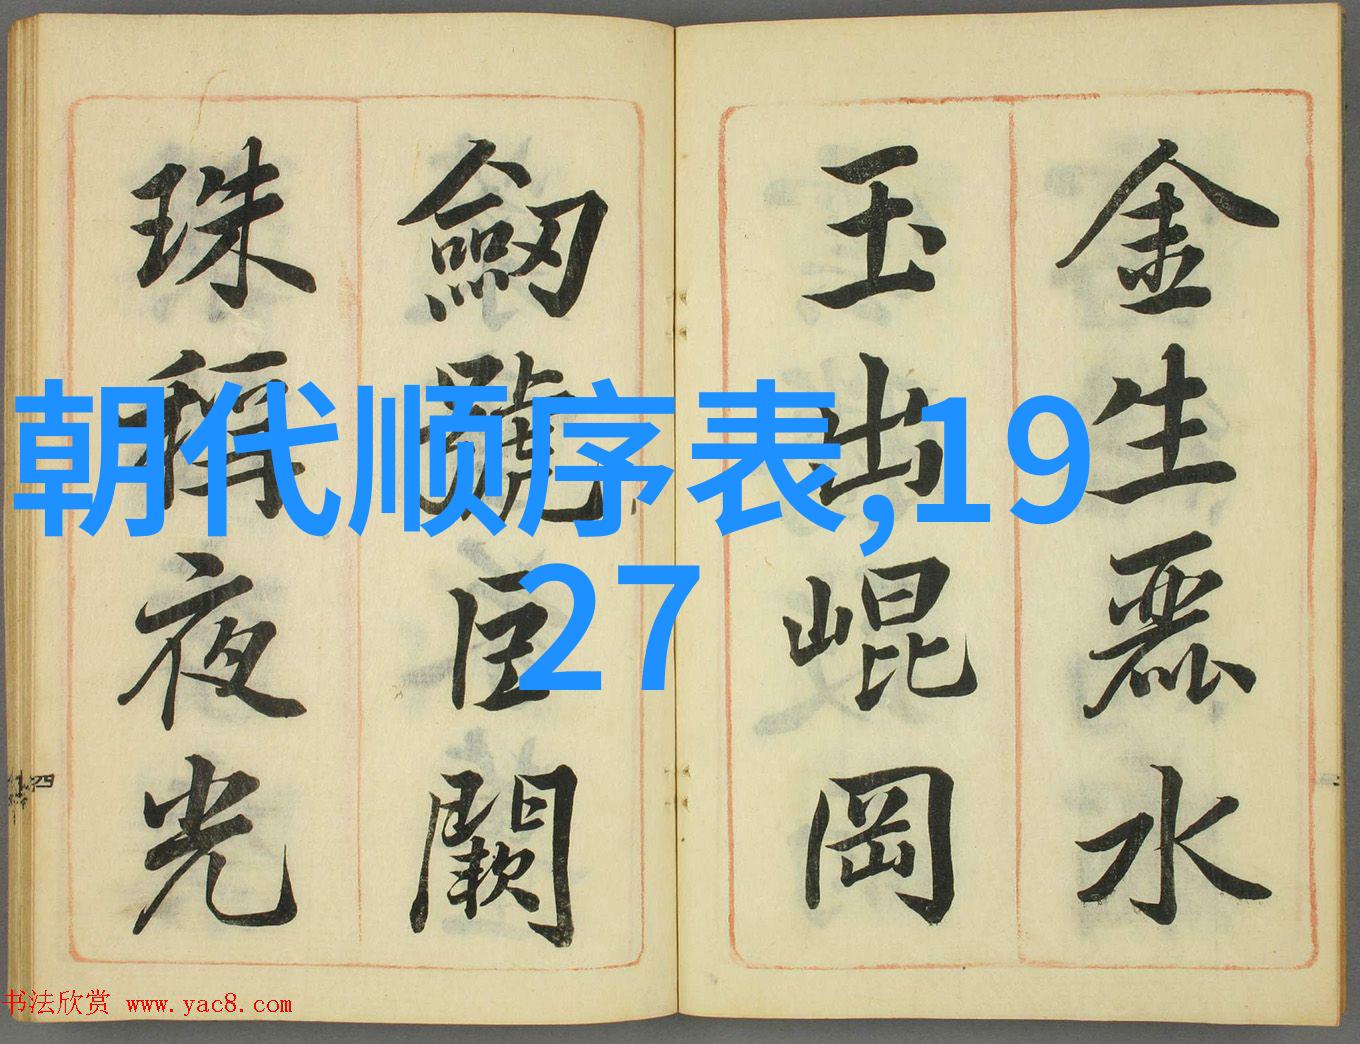 金生麗水
玉出崐岡
劒號巨闕
珠稱夜光
朝代顺序表,19
27
书法欣赏 www.yac8.com